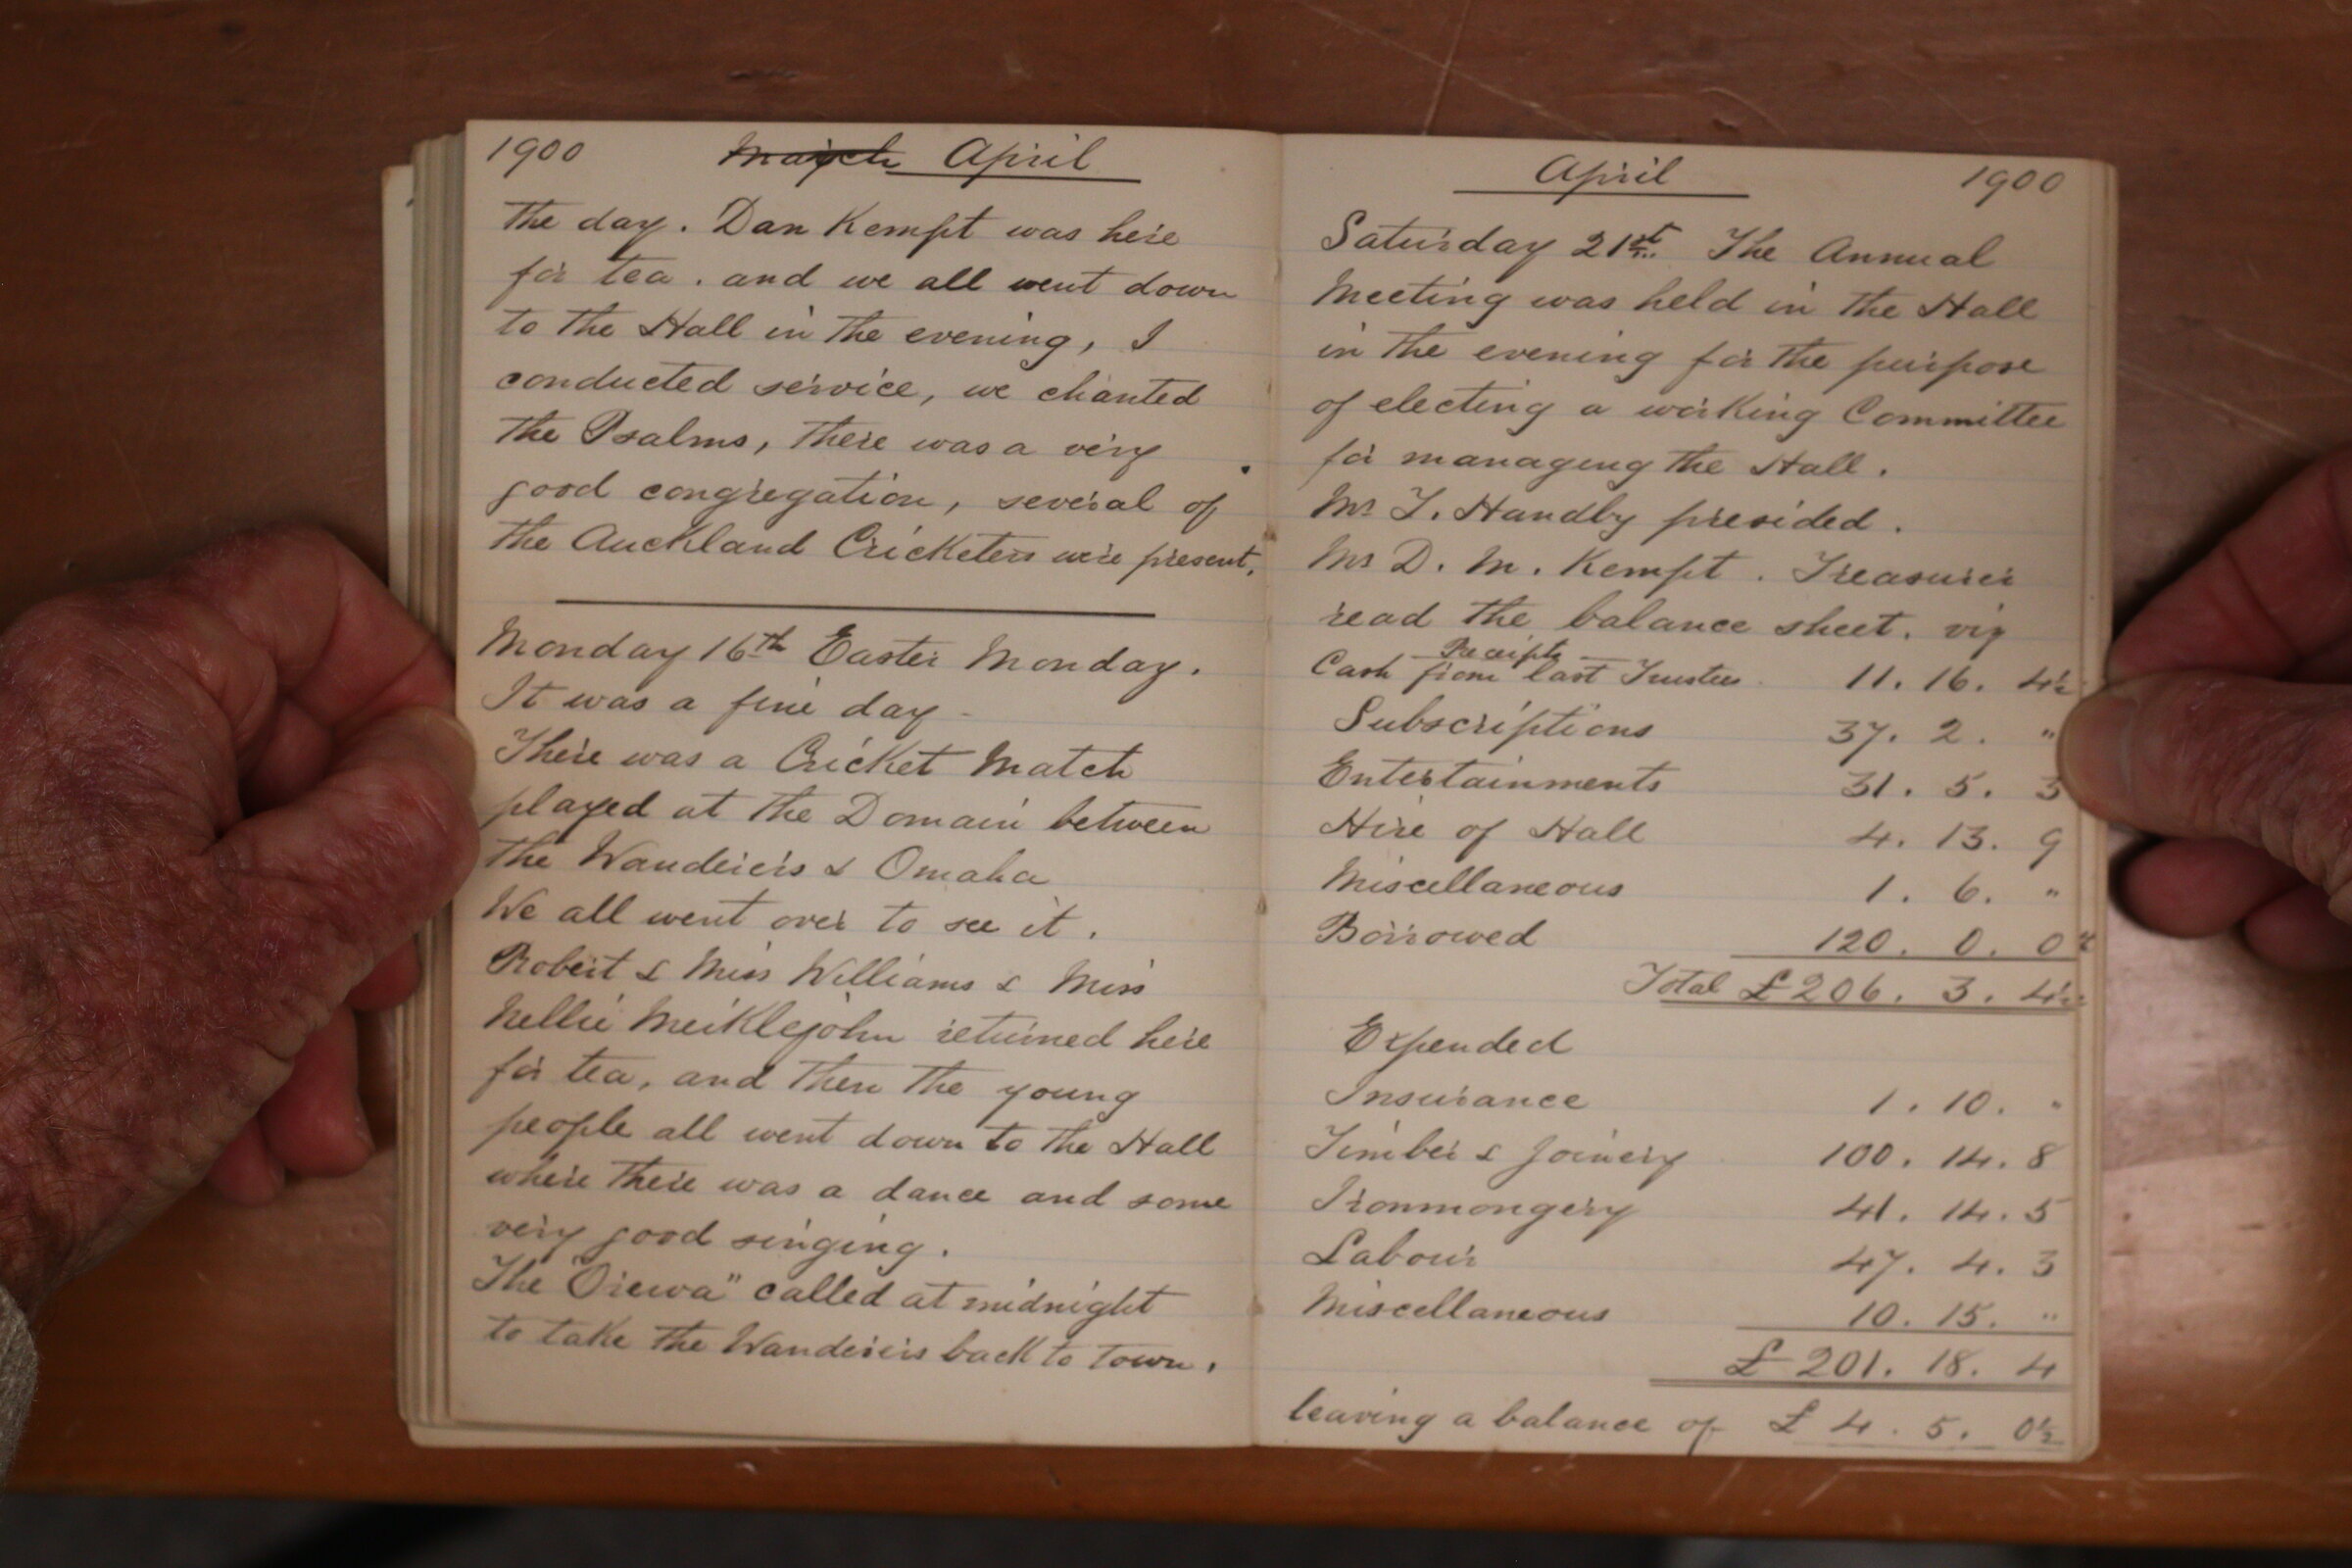 1900 March April
The day. Dan Kempt was here
for tea. and we all went down
to the Hall in the evening, I
conducted service, we chanted
the Psalms, there was a very
good congregation, several of
the Auckland Cricketers were present.
Monday 16th Easter Monday.
It was a fine day -
There was a Cricket Match
played at the Domain between
the Wanderers & Omaha
We all went over to see it.
Robert & Miss Williams & Miss
Nellie Meiklejohn returned here
for tea, and then the young
people all went down to the Hall
where there was a dance and some
very good singing.
The "Orewa" called at midnight
to take the Wanderers back to town.
April 1900
Saturday 21st. The Annual
Meeting was held in the Hall
in the evening for the purpose
of electing a working Committee
for managing the Hall.
Mr T. Handby presided.
Mr D. M. Kempt. Treasurer
read the balance sheet. viz
Receipts
Cash from last Trustees 11. 16. 4½
Subscriptions 37. 2. "
Entertainments 31. 5. 3
Hire of Hall 4. 13. 9
Miscellaneous 1. 6. "
Borrowed 120. 0. 0
Total £206. 3. 4½
Expended
Insurance 1. 10. "
Timber & Joinery 100. 14. 8
Ironmongery 41. 14. 5
Labour 47. 4. 3
Miscellaneous 10. 15. "
£ 201. 18. 4
leaving a balance of £ 4. 5. 0½